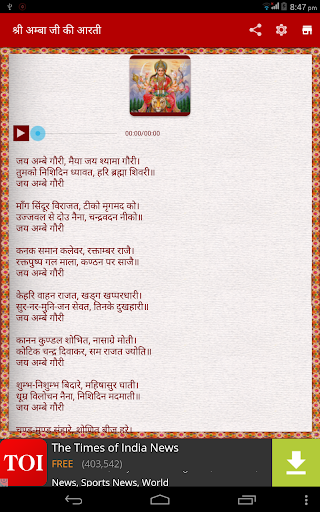 8:47 pm
श्री अम्बा जी की आरती
00:00/00:00
जय अम्बे गौरी, मैया जय श्यामा गौरी।
तुमको निशिदिन ध्यावत, हरि ब्रह्मा शिवरी॥
जय अम्बे गौरी
माँग सिंदूर विराजत, टीको मृगमद को।
उज्जवल से दोउ नैना, चन्द्रवदन नीको॥
जय अम्बे गौरी
कनक समान कलेवर, रक्ताम्बर राजै।
रक्तपुष्प गल माला, कण्ठन पर साजै॥
जय अम्बे गौरी
केहरि वाहन राजत, खड्ग खप्परधारी।
सुर-नर-मुनि-जन सेवत, तिनके दुखहारी॥
जय अम्बे गौरी
कानन कुण्डल शोभित, नासाग्रे मोती।
कोटिक चन्द्र दिवाकर, सम राजत ज्योति॥
जय अम्बे गौरी
शुम्भ-निशुम्भ बिदारे, महिषासुर घाती।
धूम्र विलोचन नैना, निशिदिन मदमाती॥
जय अम्बे गौरी
चण्ड-मुण्ड संहारे, शोणित बीज हरे।
The Times of India News
TOI
FREE (403,542)
News, Sports News, World